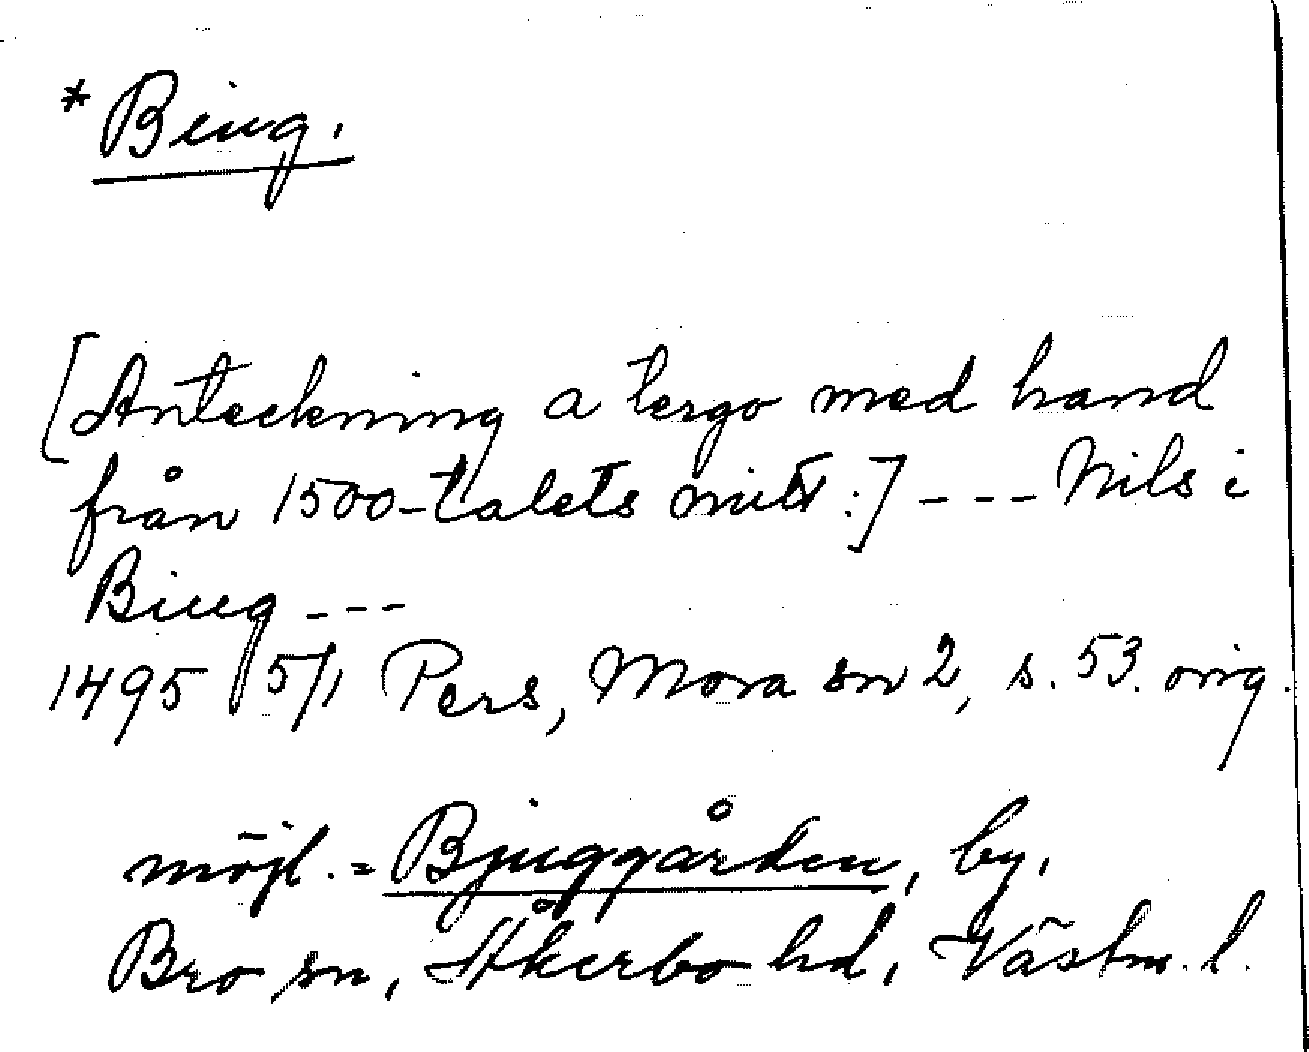 *Biug,
[Anteckning a tergo med hand
från 1500-talets mitt:] --- Nils i
Biug ---
1495 5/1 Pers, Mora sn 2, s. 53. orig.
möjl. = Bjuggården, by,
Bro sn, Åkerbo hd, Västm. l.